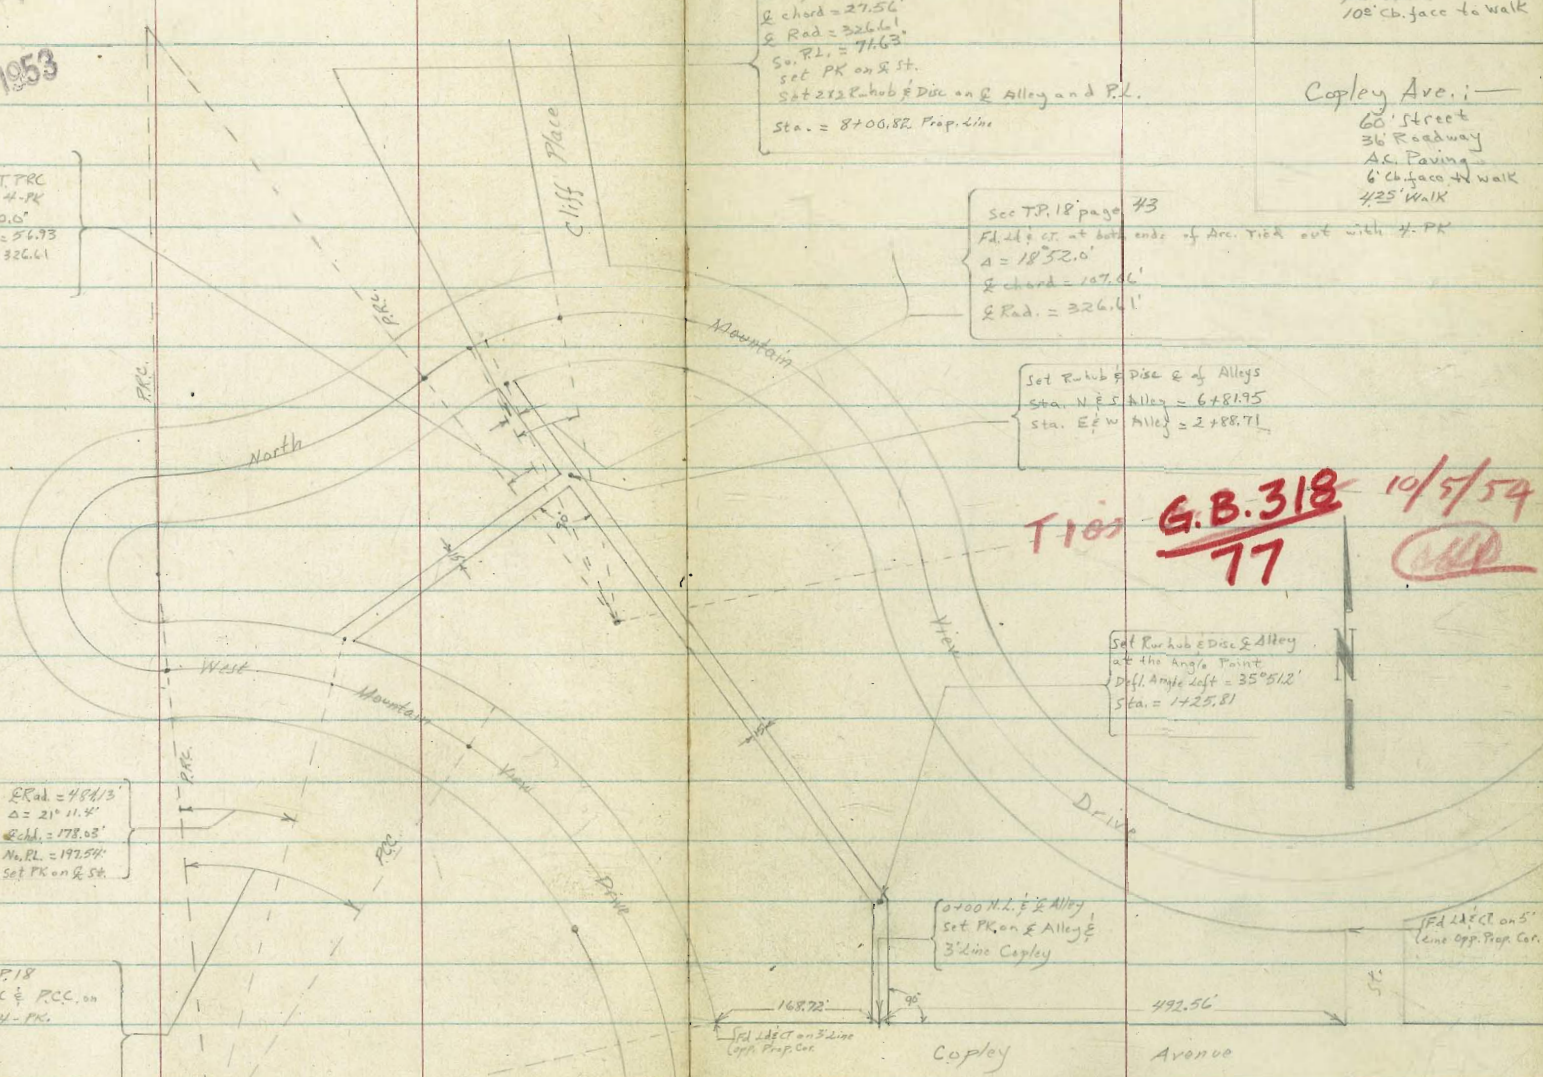 1953
T. PRC
4-PK
= 56.93
326.61
℄ chord = 27.56'
℄ Rad = 326.61'
So. P.L. = 71.63'
set PK on ℄ St.
Set 2x2 Rwhub & Disc on ℄ Alley and P.L.
Sta. = 8+00.82 Prop. Line
Cb. face to Walk
Copley Ave.:—
60' Street
36' Roadway
A.C. Paving
6' Cb. face to walk
4.25' Walk
Cliff Place
See T.P. 18 page 43
Fd. Ld & CT. at both ends of Arc. Tied out with 4-PK
Δ = 18°52.0'
℄ chord = 107.06'
℄ Rad. = 326.61'
P.R.C.
P.R.C.
Mountain
Set Rwhub & Disc ℄ of Alleys
Sta. N & S Alley = 6+81.95
Sta. E & W Alley = 2+88.71
North
Ties G.B. 318 10/5/54
77
90°
15'
N
View
Set Rwhub & Disc ℄ Alley
at the Angle Point
Defl. Angle Left = 35°51.2'
Sta. = 1+25.81
West
Mountain
15'
View
P.R.C.
℄ Rad. = 484.13'
Δ = 21° 11.4'
℄ chd. = 178.03'
No. P.L. = 197.54'
Set PK on ℄ St.
Drive
P.C.C.
Drive
0+00 N.L. & ℄ Alley
Set PK. on ℄ Alley &
3' Line Copley
Fd Ld & CT on 5'
Line Opp. Prop. Cor.
P. 18
C & P.C.C. on
4-PK.
168.72'
90°
492.56'
Fd Ld & CT on 3' Line
Opp. Prop. Cor.
Copley Avenue